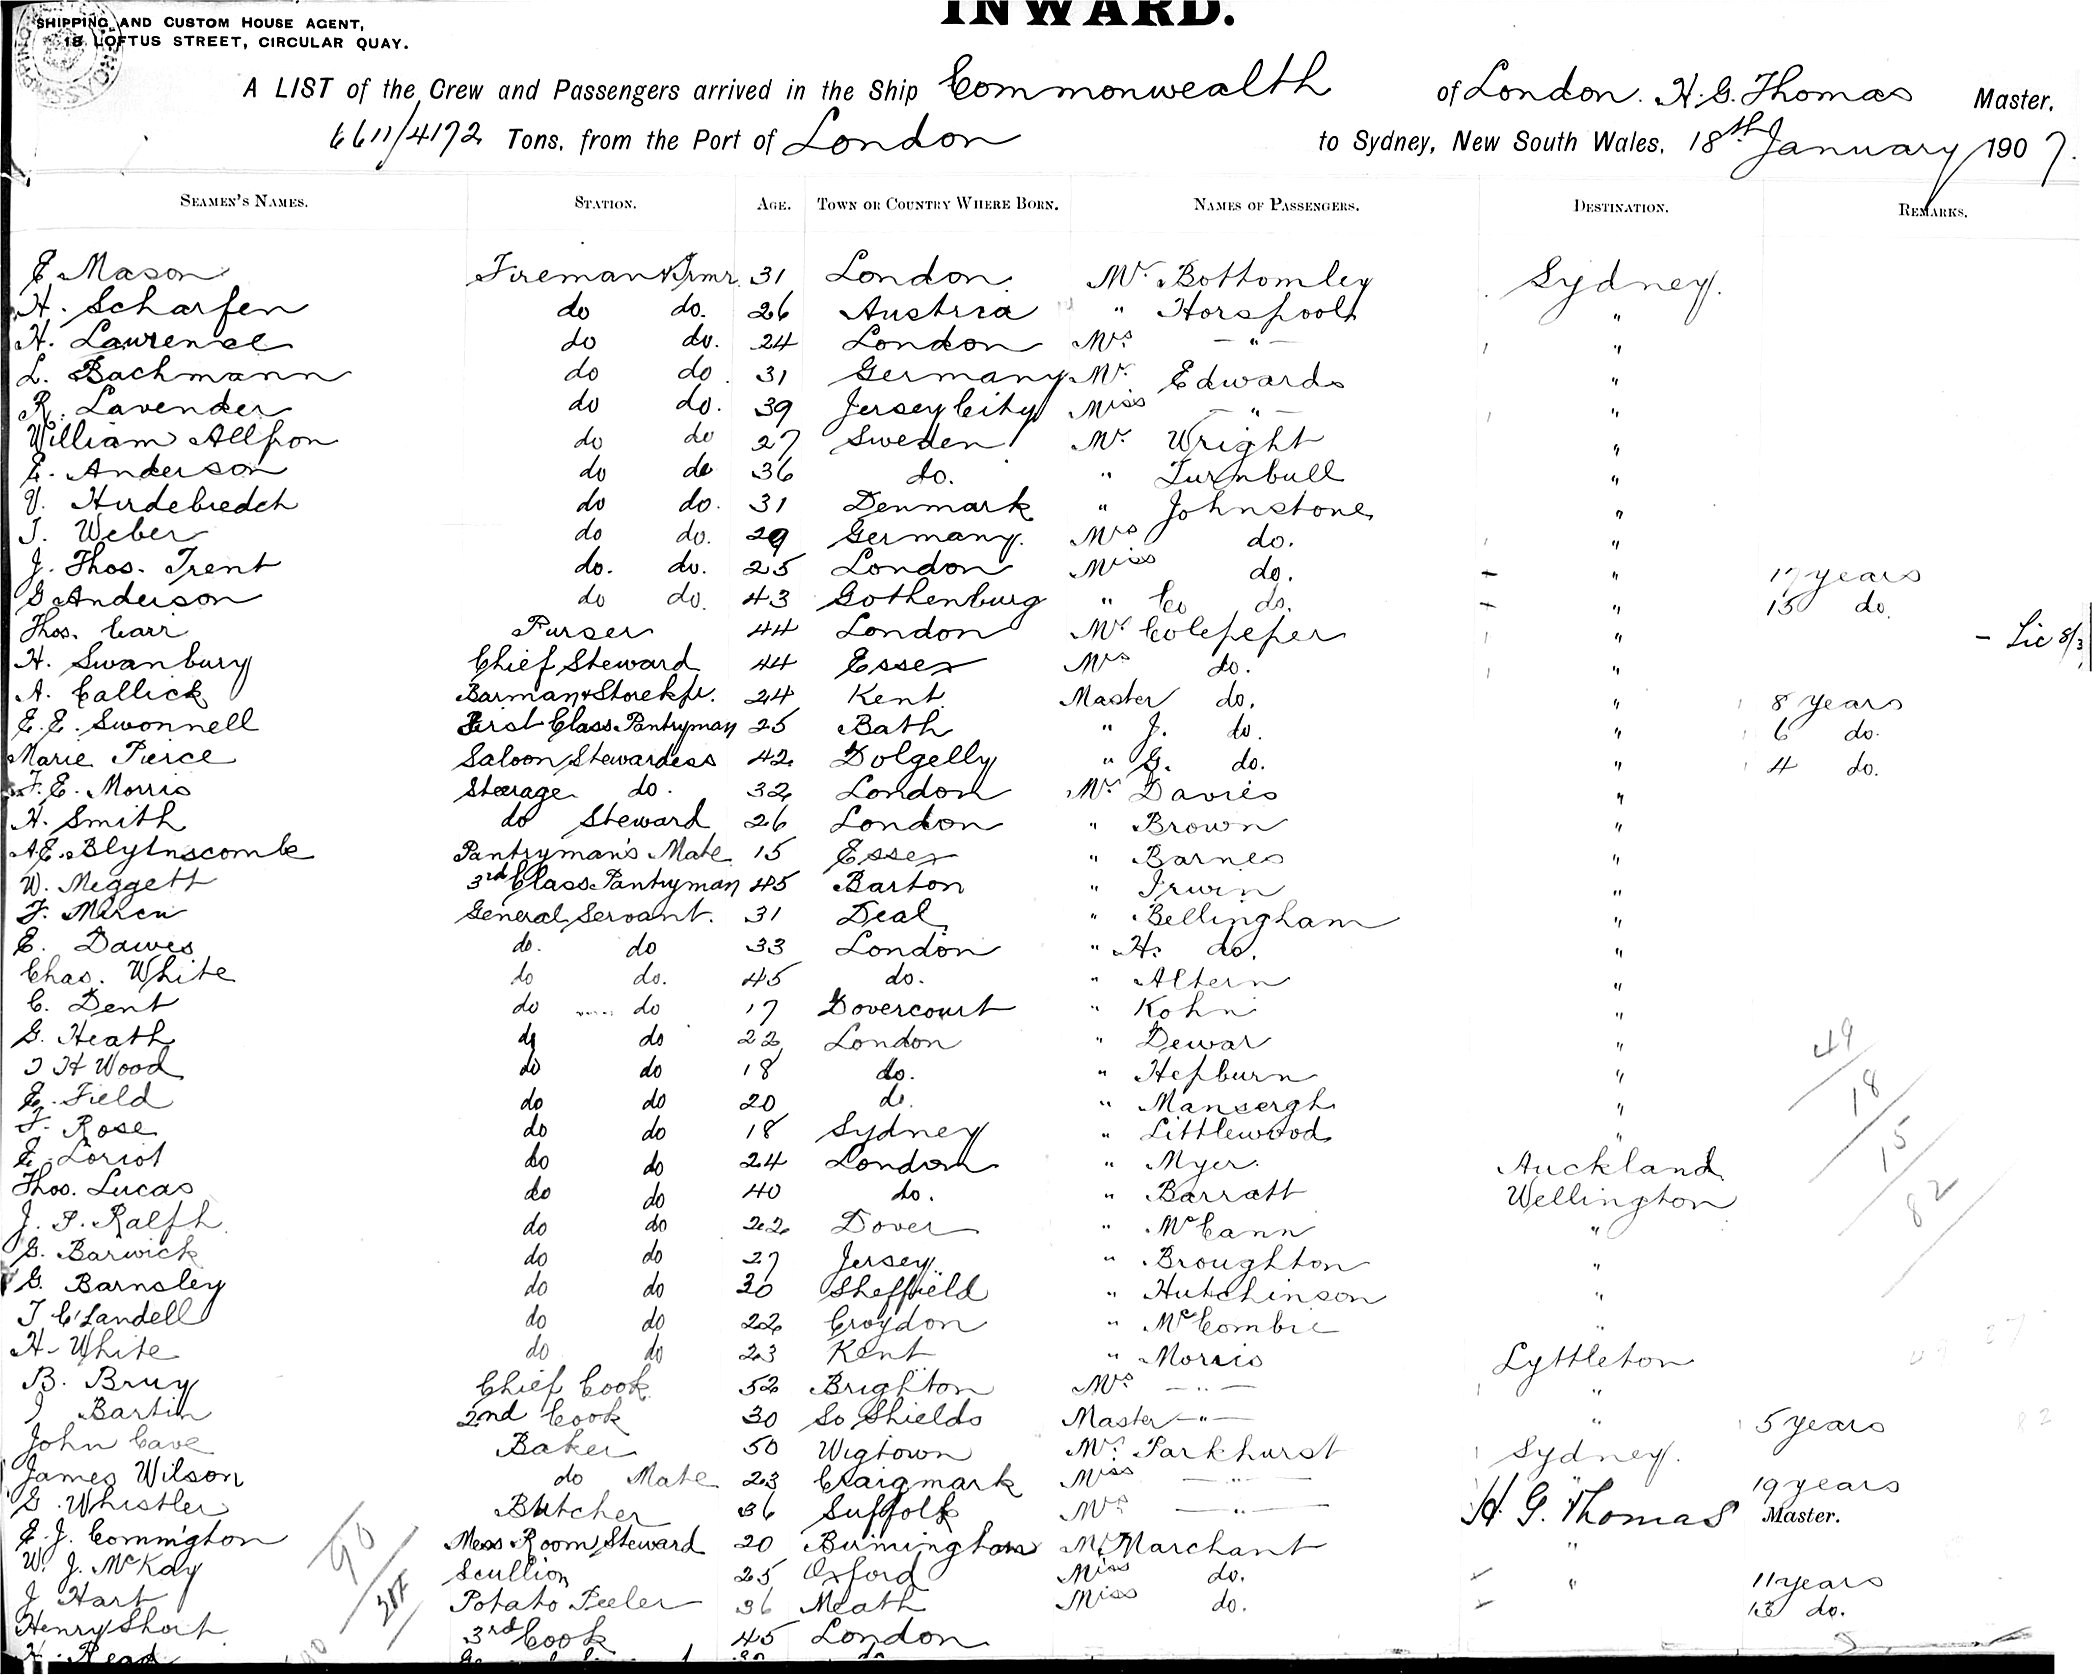 INWARD.
SHIPPING AND CUSTOM HOUSE AGENT,
18 LOFTUS STREET, CIRCULAR QUAY.
A LIST of the Crew and Passengers arrived in the Ship Commonwealth of London. H. G. Thomas Master.
6611/4172 Tons, from the Port of London to Sydney, New South Wales, 18th January 1907.
SEAMEN'S NAMES. STATION. AGE. TOWN OR COUNTRY WHERE BORN. NAMES OF PASSENGERS. DESTINATION. REMARKS.
E Mason Fireman & Trmr. 31 London. Mr. Bottomley Sydney.
H. Scharfen do do. 26 Austria " Horspool "
H. Laurence do do. 24 London Mrs — " — "
L. Bachmann do do. 31 Germany Mr. Edwards "
R. Lavender do do. 39 Jersey City Miss — " — "
William Allpon do do 27 Sweden Mr. Wright "
E. Anderson do do 36 do. " Turnbull "
V. Hirdebredch do do. 31 Denmark " Johnstone "
J. Weber do do. 29 Germany. Mrs do. "
J. Thos. Trent do. do. 25 London Miss do. " 17 years
G Anderson do do. 43 Gothenburg " Co do. " 15 do.
Thos. Carr Purser 44 London Mr Colepeper " – Lic 8/3
H. Swanbury Chief Steward 44 Essex Mrs do. "
A. Callick Barman & Storekpr. 24 Kent Master do. " 8 years
E. E. Swonnell First Class Pantryman 25 Bath " J. do. " 6 do.
Marie Pierce Saloon Stewardess 42 Dolgelly " G. do. " 4 do.
F. E. Morris Steerage do. 32 London Mr. Davies "
H. Smith do Steward 26 London " Brown "
A.E. Blytnscombe Pantryman's Mate 15 Essex " Barnes "
W. Meggett 3rd Class Pantryman 45 Barton " Irwin "
F. Miren General Servant. 31 Deal " Bellingham "
E. Dawes do. do 33 London " H. do. "
Chas. White do do. 45 do. " Altern "
C. Dent do do 17 Dovercourt " Kohn "
G. Heath do do 22 London " Dewar "
J H Wood do do 18 do. " Hepburn "
E. Field do do 20 do. " Mansergh "
F. Rose do do 18 Sydney " Littlewood "
E. Loriot do do 24 London " Myer. Auckland
Thos. Lucas do do 40 do. " Barratt Wellington
J. P. Ralph do do 22 Dover " McCann "
G. Barwick do do 27 Jersey " Broughton "
G. Barnsley do do 30 Sheffield " Hutchinson "
J C'Landell do do 22 Croydon " McCombie "
H. White do do 23 Kent " Morris Lyttleton
B. Bruy Chief Cook 52 Brighton Mrs — " — "
J Bartin 2nd Cook 30 So Shields Master — " — " 5 years
John Cave Baker 50 Wigtown Mr. Parkhurst Sydney.
James Wilson do Mate 23 Craigmark Miss — " — " 19 years
G. Whistler Butcher 36 Suffolk Mrs — " — H. G. Thomas Master.
E. J. Connington Mess Room Steward 20 Birmingham Mr Marchant "
W. J. McKay Scullion 25 Oxford Miss do. " 11 years
J Hart Potato Peeler 36 Meath Miss do. 13 do.
Henry Short 3rd Cook 45 London
H. Read
49
18
15
82
90